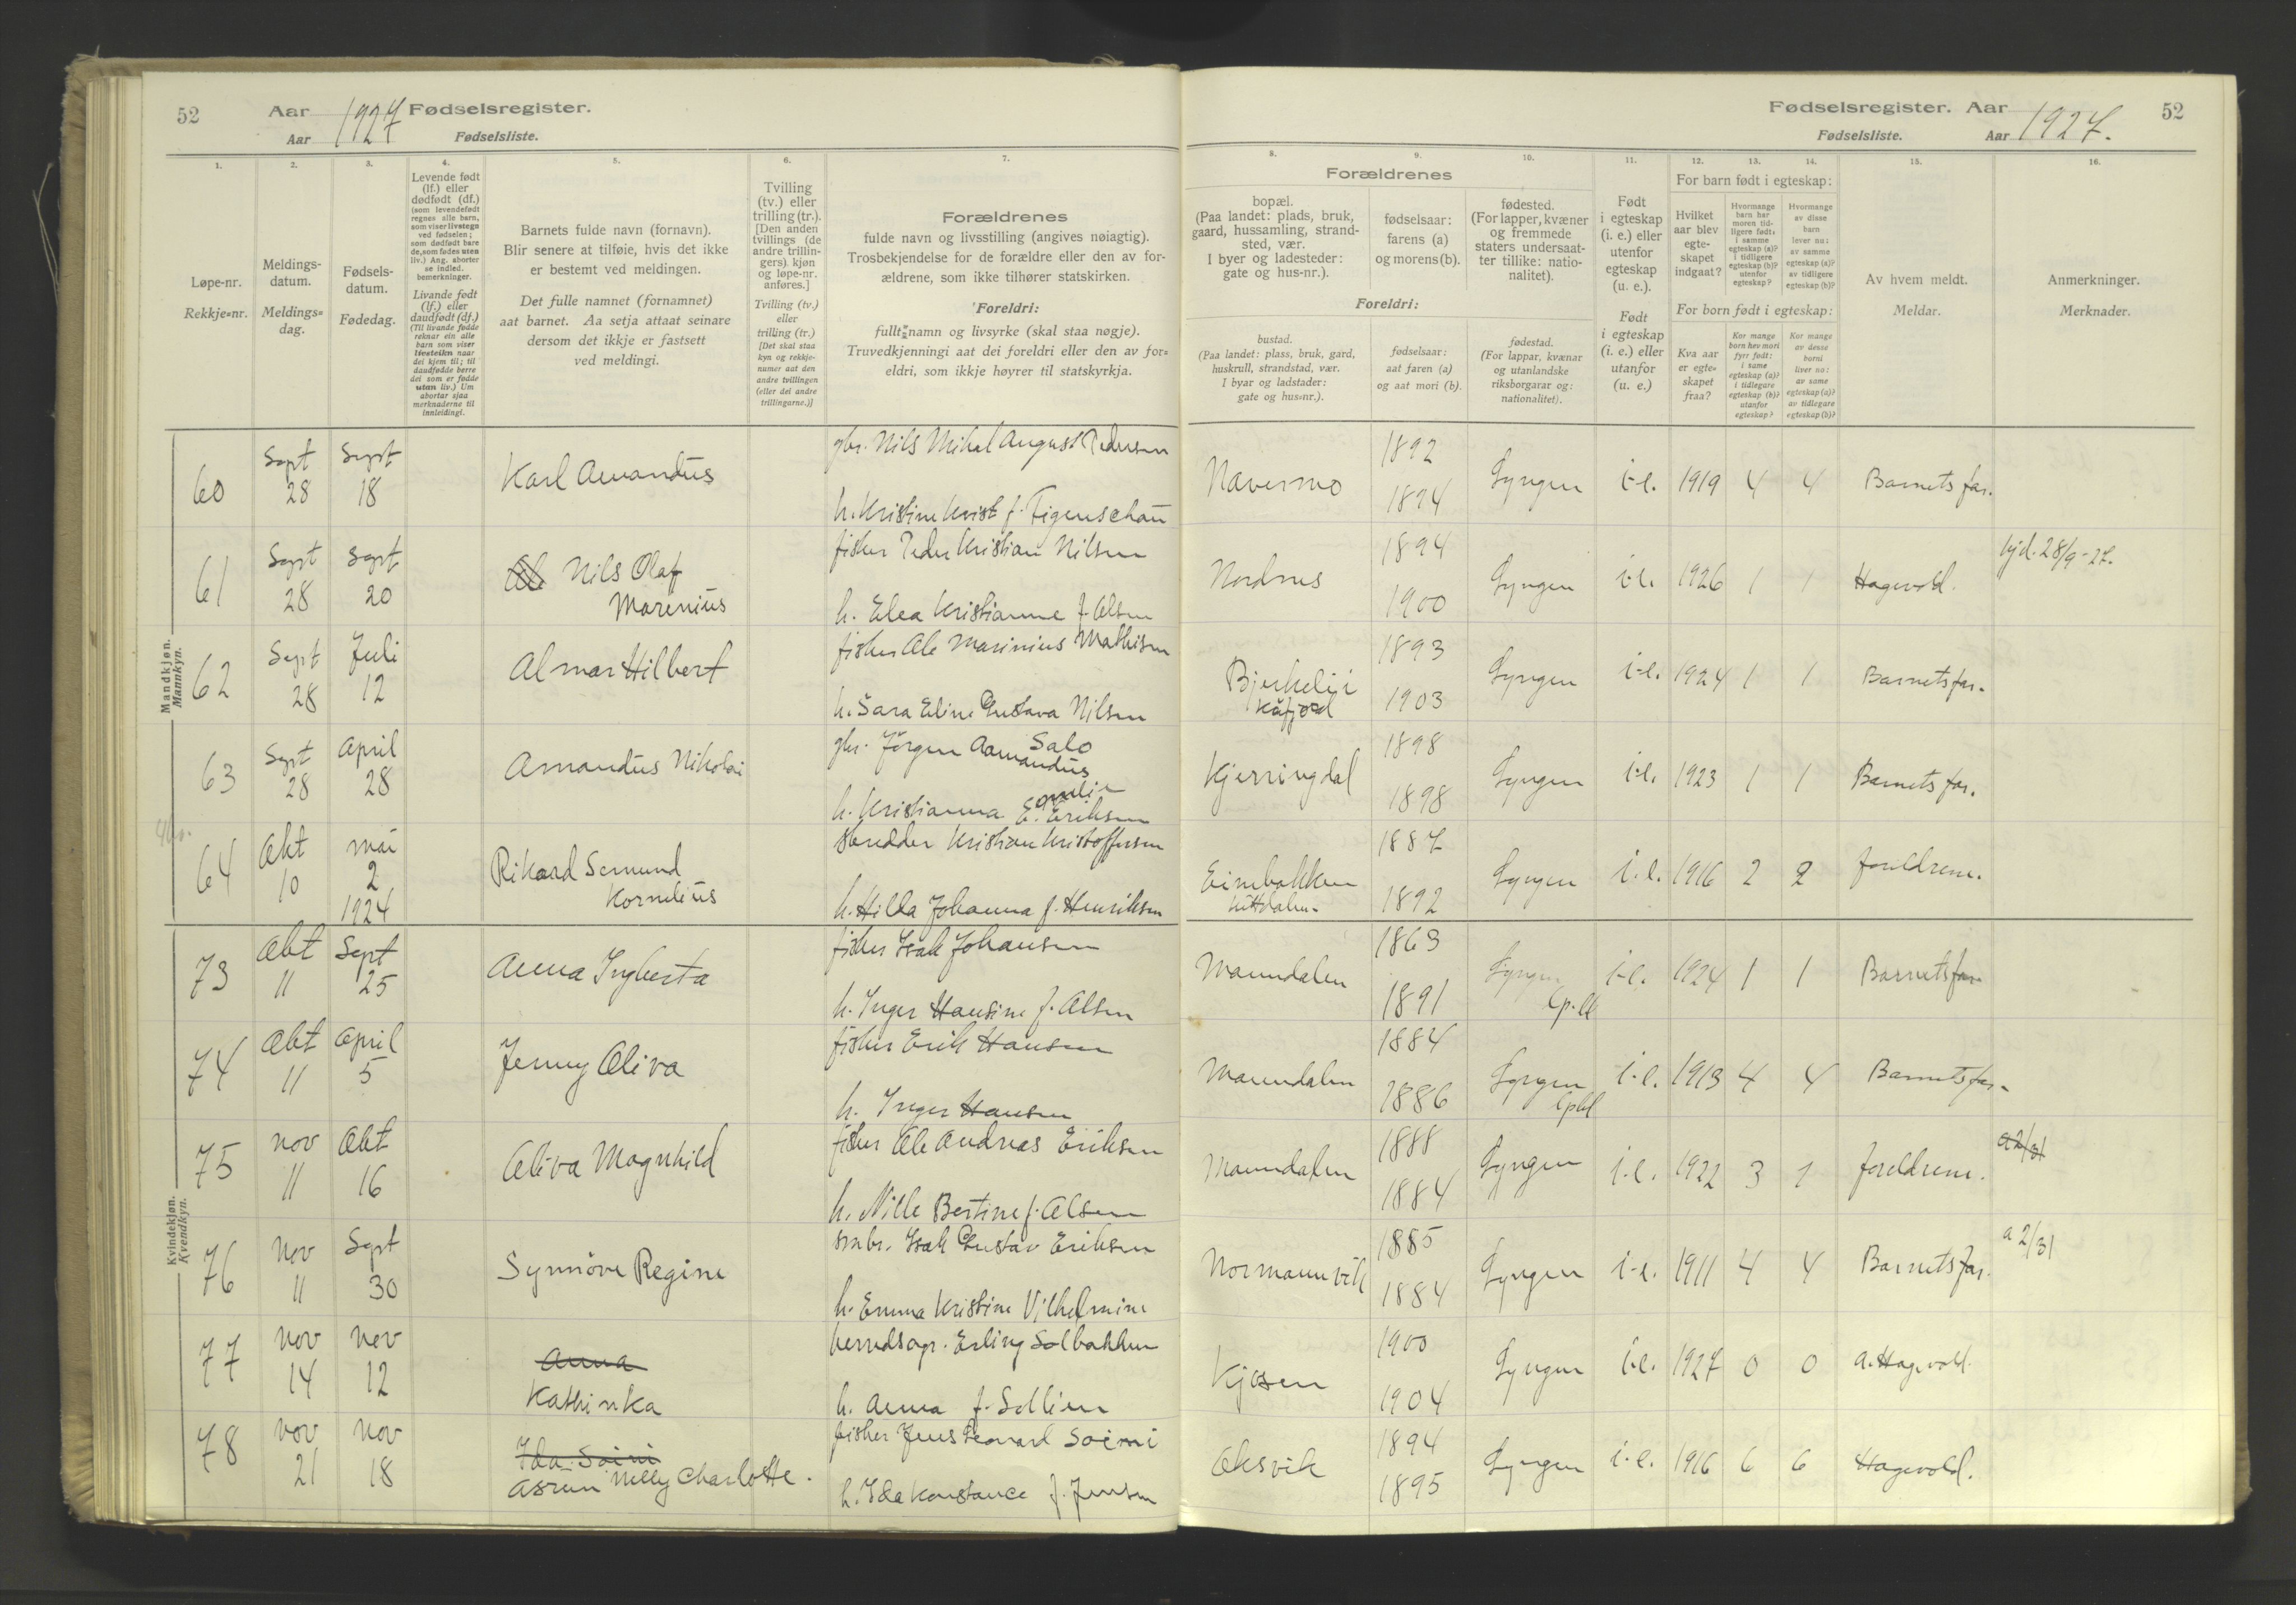 52 Aar 1927 Fødselsregister.
Aar Fødselsliste.
Fødselsregister. Aar 1927. 52
Fødselsliste. Aar
1. 2. 3. 4. 5. 6. 7. 8. 9. 10. 11. 12. 13. 14. 15. 16.
Løpe-nr.
Rekkje=nr.
Meldings-
datum.
Meldings=
dag.
Fødsels-
datum.
Fødedag.
Levende født
(lf.) eller
dødfødt (df.)
(som levendefødt
regnes alle barn,
som viser livstegn
ved fødselen;
som dødfødt bare
de, som fødes uten
liv.) Ang. aborter
se indled.
bemerkninger.
Livande født
(lf.) eller
daudfødt (df.)
(Til livande fødde
reknar ein alle
barn som viser
livsteikn naar
dei kjem til; til
daudfødde berre
dei som er fødde
utan liv.) Um
abortar sjaa
merknaderne til
innleidingi.
Barnets fulde navn (fornavn).
Blir senere at tilføie, hvis det ikke
er bestemt ved meldingen.
Det fulle namnet (fornamnet)
aat barnet. Aa setja attaat seinare
dersom det ikkje er fastsett
ved meldingi.
Tvilling
(tv.) eller
trilling (tr.).
[Den anden
tvillings (de
andre trillin-
gers) kjøn
og løpe-nr.
anføres.]
Tvilling (tv.)
eller
trilling (tr.)
[Det skal staa
kyn og rekkje-
numer aat den
andre tvillingen
(eller dei andre
trillingarne.)]
Forældrenes
fulde navn og livsstilling (angives nøiagtig).
Trosbekjendelse for de forældre eller den av for-
ældrene, som ikke tilhører statskirken.
Foreldri:
fullt namn og livsyrke (skal staa nøgje).
Truvedkjenningi aat dei foreldri eller den av for=
eldri, som ikkje høyrer til statskyrkja.
Forældrenes
bopæl.
(Paa landet: plads, bruk,
gaard, hussamling, strand-
sted, vær.
I byer og ladesteder:
gate og hus-nr.).
fødselsaar:
farens (a)
og morens (b).
fødested.
(For lapper, kvæner
og fremmede
staters undersaat-
ter tillike: natio-
nalitet).
Foreldri:
bustad.
(Paa landet: plass, bruk, gard,
huskrull, strandstad, vær.
I byar og ladstader:
gate og hus=nr.).
fødselsaar:
aat faren (a)
og aat mori (b).
fødestad.
(For lappar, kvænar
og utanlandske
riksborgarar og:
nationalitet).
Født
i egteskap
(i. e.) eller
utenfor
egteskap
(u. e.).
Født
i egteskap
(i. e.) eller
utanfor
(u. e.)
For barn født i egteskap:
Hvilket
aar blev
egte-
skapet
indgaat?
Hvormange
barn har
moren tid-
ligere født:
i samme
egteskap (a)?
i tidligere
egteskap (b)?
utenfor
egteskap?
Hvormange
av disse
barn
lever nu:
av samme
egteskap (a)?
av tidligere
egteskap (b)?
For born født i egteskap:
Kva aar
er egte=
skapet
fraa?
Kor mange
born hev mori
fyrr født:
i same
egteskap (a)?
i tidlegare
egteskap (b)?
utanfor
egteskap?
Kor mange
av desse
borni
liver no:
av same
egteskap (a)?
av tidlegare
egteskap (b)?
Av hvem meldt.
Meldar.
Anmerkninger.
Merknader.
Mandkjøn.
Mannkyn.
60 Sept 28 Sept 18 Karl Amandus gbr. Nils Mikal August Pedersen
h. Kristine Kvist f. Figenschau
Navermo 1892 1894 Lyngen i.e. 1919 4 4 Barnets far.
61 Sept 28 Sept 20 Nils Olaf
Marenius
fisker Peder Kristian Nilsen
h. Elea Kristianne f. Olsen
Nordnes 1894 1900 Lyngen i.e. 1926 1 1 Hagevold. hjd. 28/9-27.
62 Sept 28 Juli 12 Almar Hilbert fisker Ole Marinius Mathisen
h. Sara Eline Gustava Nilsen
Bjerkeli i
Kåfjord
1893 1903 Lyngen i.e. 1924 1 1 Barnets far.
63 Sept 28 April 28 Amandus Nikolai gbr. Jörgen Aamandus Salo
h. Kristianna Emilie E. Eriksen
Kjerringdal 1898 1898 Lyngen i.e. 1923 1 1 Barnets far.
64 Okt 10 mai 2 1924 Rikard Semund
Kornelius
skredder Kristian Kristoffersen
h. Hilda Johanna f. Henriksen
1887 1892 Lyngen i.e. 1916 2 2 foreldrene.
Kvindekjøn.
Kvendkyn.
73 Okt 11 Sept 25 Anna Ingberta fisker Isak Johansen
h. Inger Hansine f. Olsen
Manndalen 1863 1891 Lyngen i.e. 1924 1 1 Barnets far
74 Okt 11 April 5 Jenny Oliva fisker Erik Hansen
h. Inger Hansen
Manndalen 1884 1886 Lyngen i.e. 1913 4 4 Barnets far.
75 nov 11 Okt 16 Oliva Magnhild fisker Ole Andreas Eriksen
h. Nille Bertine f. Olsen
Manndalen 1888 1884 Lyngen i.e. 1922 3 1 foreldrene. a2/31
76 Nov 11 Sept 30 Synnöve Regine smbr. Isak Gustav Eriksen
h. Emma Kristine Vilhelmine
Normannvik 1885 1884 Lyngen i.e. 1911 4 4 Barnets far. a 2/31
77 Nov 14 Nov 12 Anna
Kathinka
herredsagr. Erling Solbakken
h. Anna f. Sollien
Kjosen 1900 1904 Lyngen i.e. 1927 0 0 A. Hagevold.
78 nov 21 Nov 18 Ida Soini
Asrun Nelly Charlotte.
fisker Jens Leonard Soini
h. Ida Konstance f. Jensen
Oksvik 1894 1895 Lyngen i.e. 1916 6 6 Hagevold.